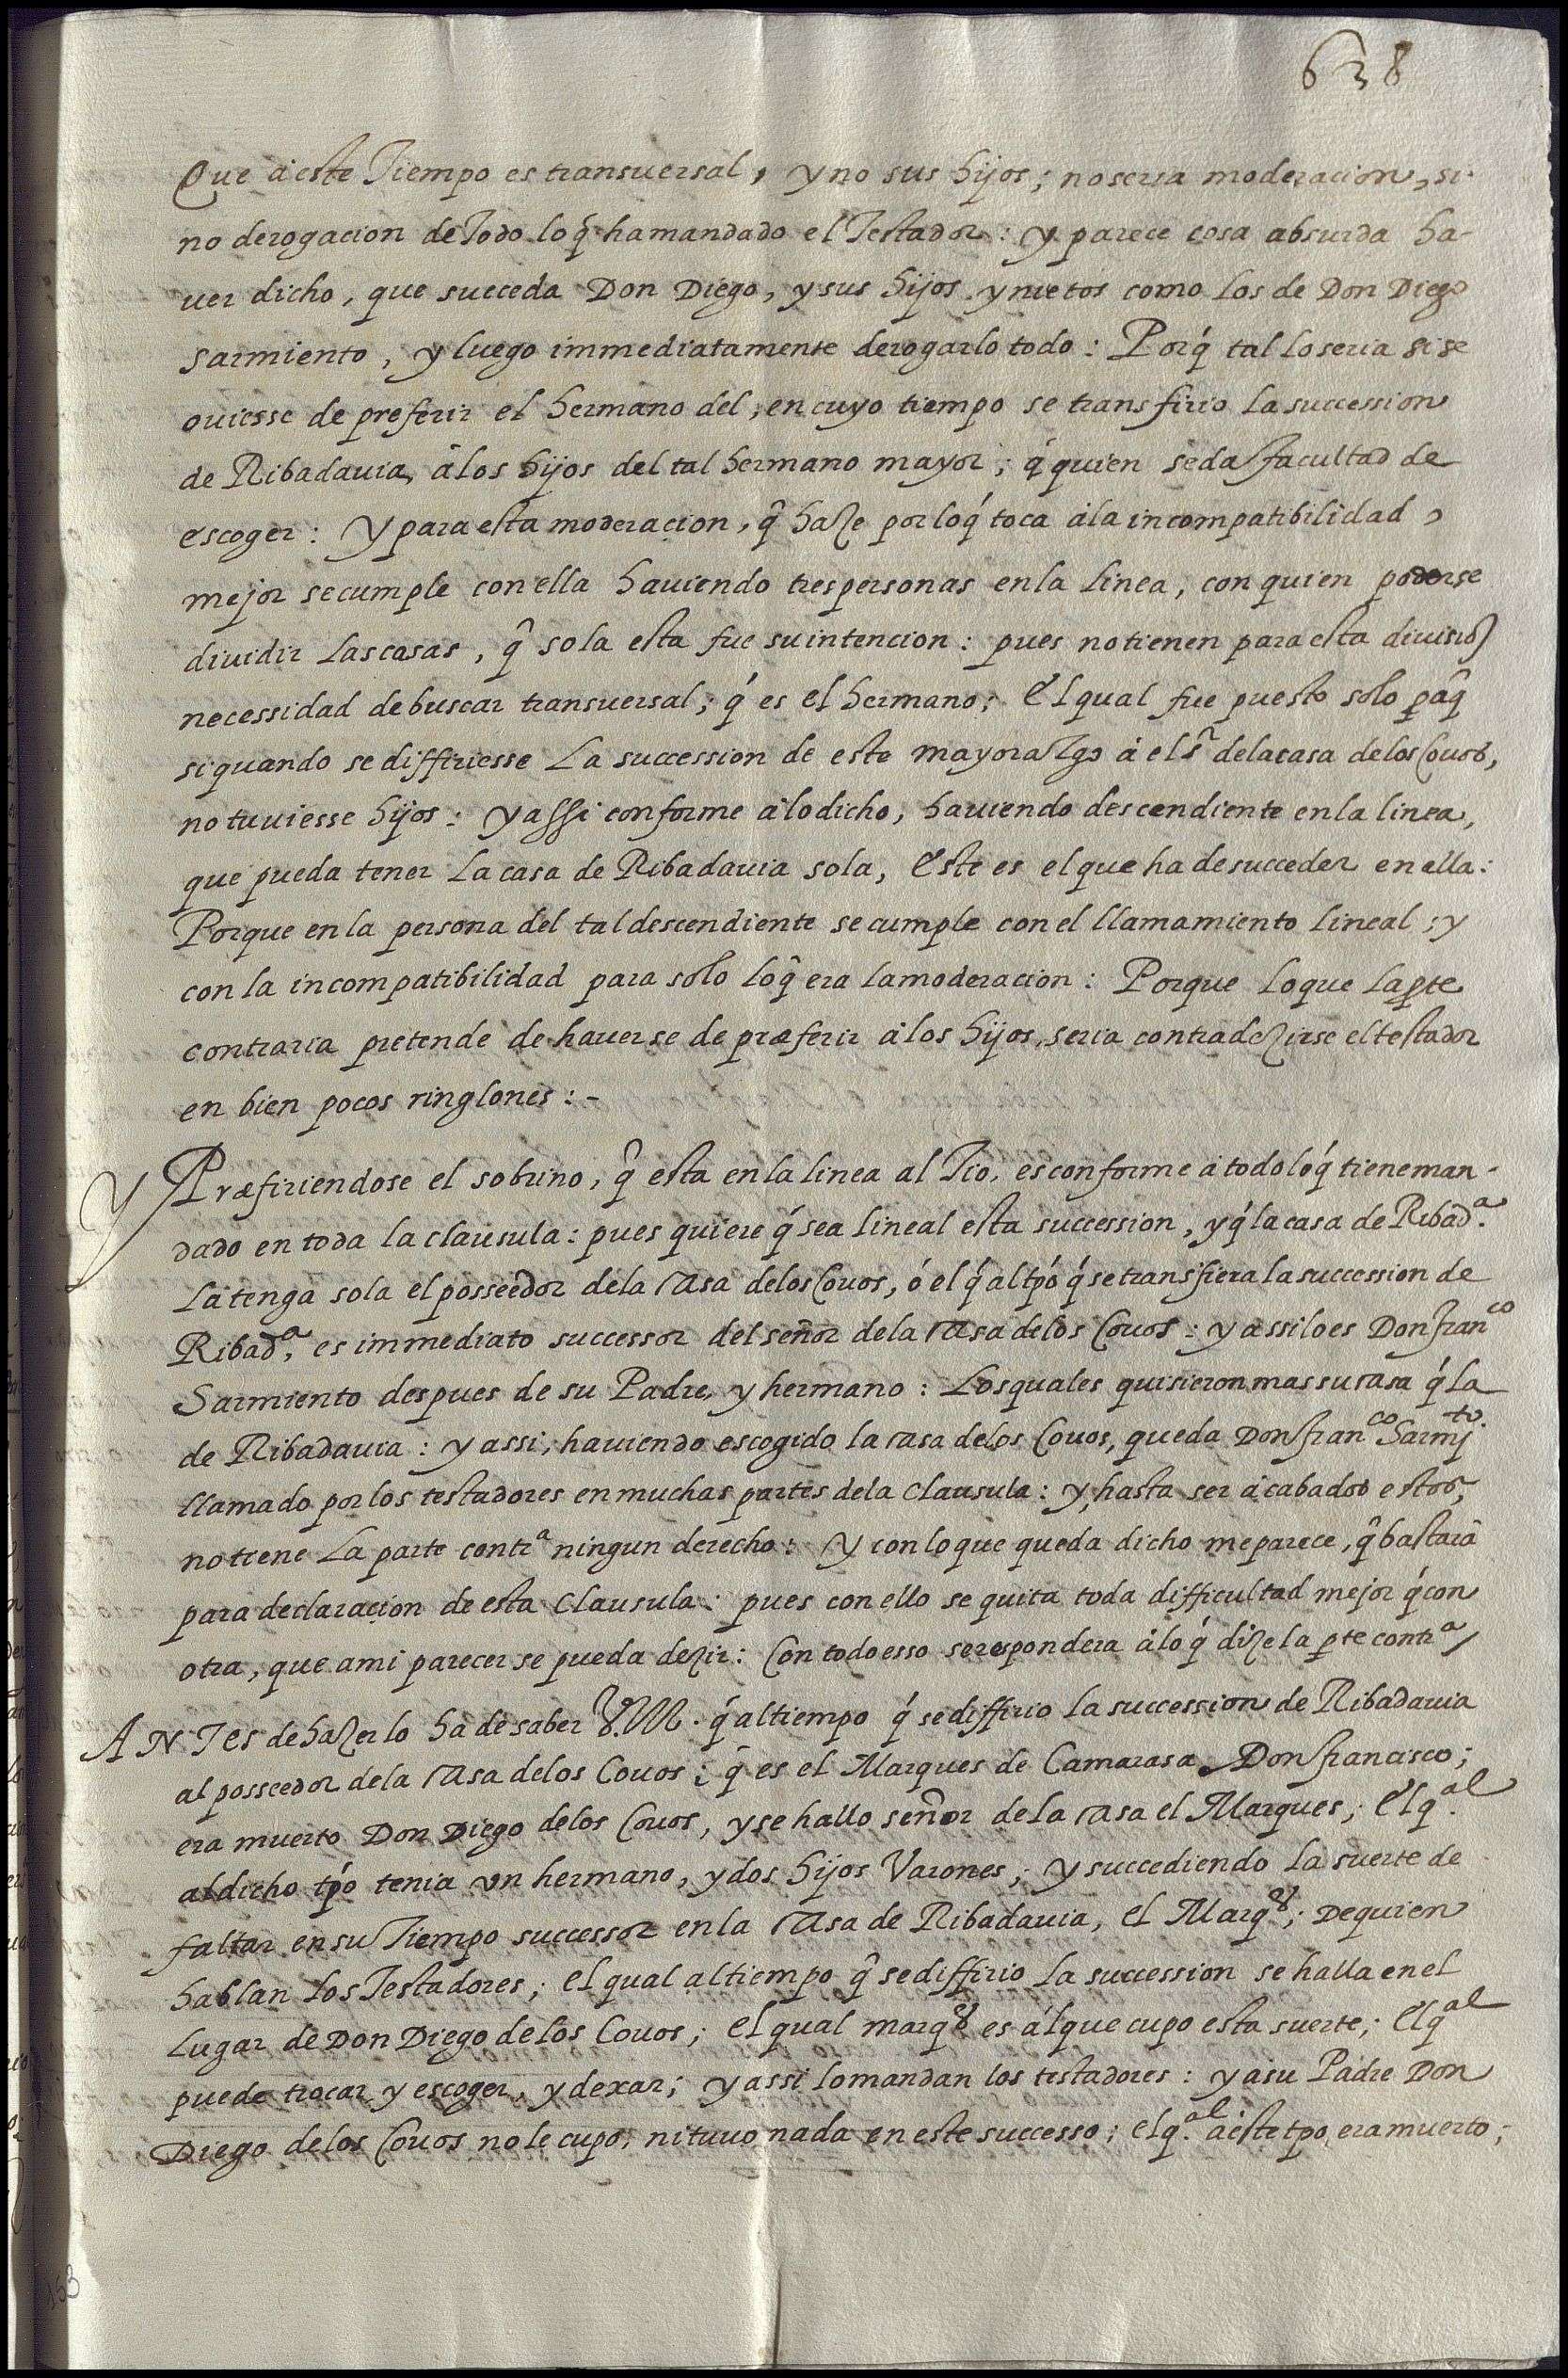 638
Que à este Tiempo es transuersal, y no sus hijos; no seria moderacion, si-
no derogacion de Todo lo q̃ ha mandado el Testador: y parece cosa absurda ha-
uer dicho, que succeda Don Diego, y sus hijos y nietos como los de Don Diego
sarmiento, y luego immediatamente derogarlo todo: Porq́ tal lo seria si se
ouiesse de preferir el hermano del, en cuyo tiempo se transfirio la succession
de Ribadauia, à los hijos del tal hermano mayor; q́ quien se da facultad de
escoger: y para esta moderacion, q̃ haze por lo q́ toca à la incompatibilidad,
mejor se cumple con ella hauiendo tres personas en la linea, con quien poderse
diuidir las casas, q̃ sola esta fue su intencion: pues no tienen para esta diuisiõ
necessidad de buscar transuersal; q́ es el hermano; El qual fue puesto solo p̱aq̃
si quando se diffiriesse La succession de este mayorazgo à el s.r de la casa de los Couos,
no tuuiesse hijos: y assi conforme à lo dicho, hauiendo descendiente en la linea,
que pueda tener La casa de Ribadauia sola, Este es el que ha de succeder en ella:
Porque en la persona del tal descendiente se cumple con el llamamiento lineal; y
con la incompatibilidad para solo lo q̃ era la moderacion: Porque lo que la p̱te
contraria pretende de hauerse de præferir à los hijos, seria contradezirse el testador
en bien pocos ringlones: -
Y Præfiriendose el sobrino, q̃ esta en la linea al Tio, es conforme à todo lo q́ tiene man-
dado en toda la clausula: pues quiere q́ sea lineal esta succession, y q́ la casa de Ribad.ª
La tenga sola el posseedor de la casa de los Couos, ó el q́ al tp̃o q́ se transfiera la succession de
Ribad.ª, es immediato successor del señor de la casa de los Couos: y assi lo es Don fran.co
Sarmiento despues de su Padre, y hermano: Los quales quisieron mas su casa q́ La
de Ribadauia: y assi, hauiendo escogido la casa de los Couos, queda Don fran.co Sarmj.to
llamado por los testadores en muchas partes de la clausula: y, hasta ser acabados estos,
no tiene La parte contr.ª ningun derecho: y con lo que queda dicho me parece, q̃ bastarà
para declaracion de esta clausula: pues con ello se quita toda difficultad mejor q́ con
otra, que a mi parecer se pueda dezir: Con todo esso se respondera à lo q́ dize la p̱te contr.ª
ANTes de hazerlo hà de saber V.M. q́ al tiempo q́ se diffirio la succession de Ribadauia
al posseedor de la casa de los Couos; q̃ es el Marques de Camarasa Don francisco;
era muerto Don Diego de los Couos, y se hallo señor de la casa el Marques; El q.al
al dicho tp̃o tenia vn hermano, y dos hijos Varones; y succediendo la suerte de
faltar en su Tiempo successor en la casa de Ribadauia, el Marq.s; De quien
hablan los Testadores; el qual al tiempo q̃ se diffirio la succession se halla en el
Lugar de Don Diego de los Couos; el qual marq.s es al que cupo esta suerte; El q.al
puede trocar y escoger, y dexar; y assi lo mandan los testadores: y a su Padre Don
Diego de los Couos no le cupo, ni tuuo nada en este successo; el q.al à este tpo, era muerto;
153